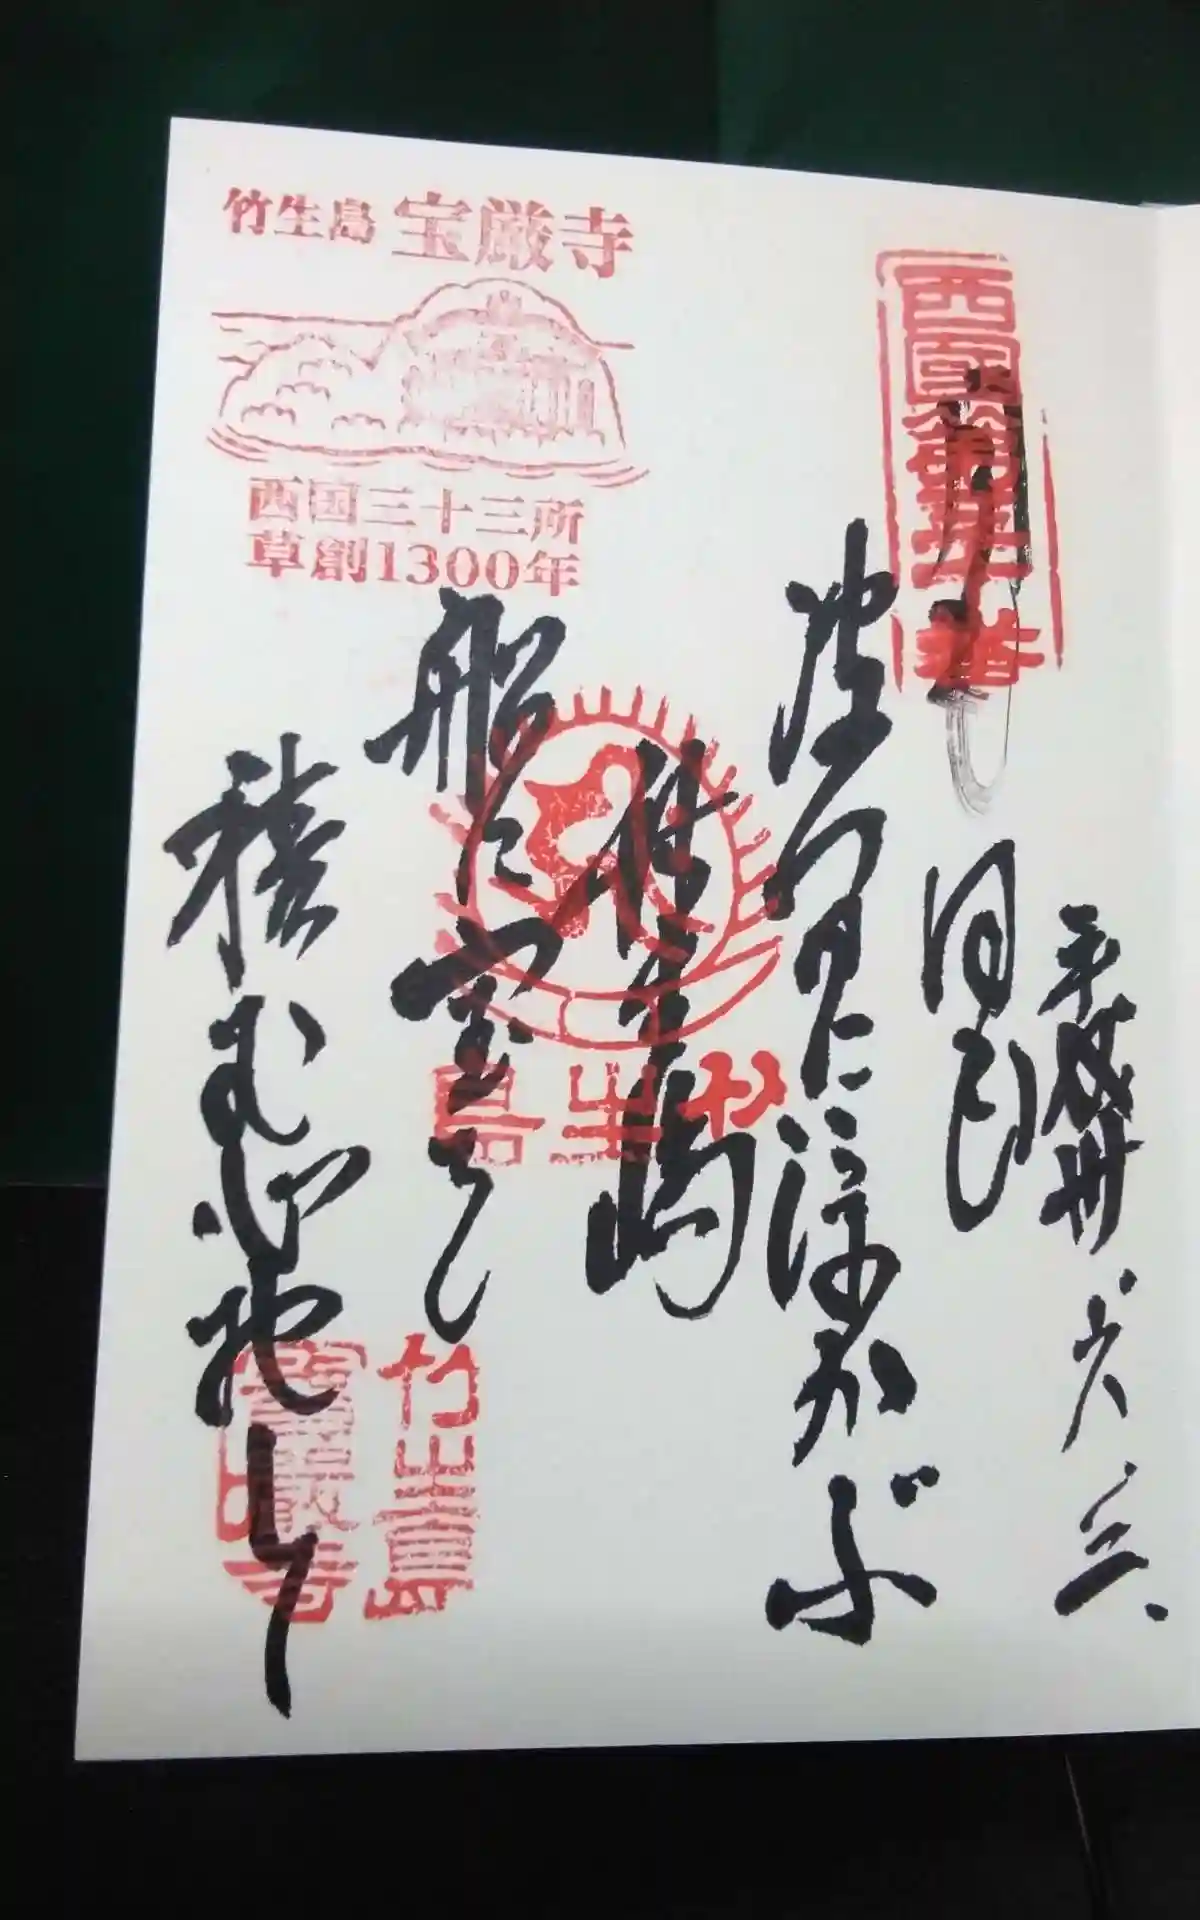 竹生島 宝厳寺
西国三十三所
草創1300年
西國第三十番
平成卅、六、三
月も日も
波間に浮かぶ
竹生嶋
船に宝を
積む心地して
竹生島
竹生島
寶嚴寺印